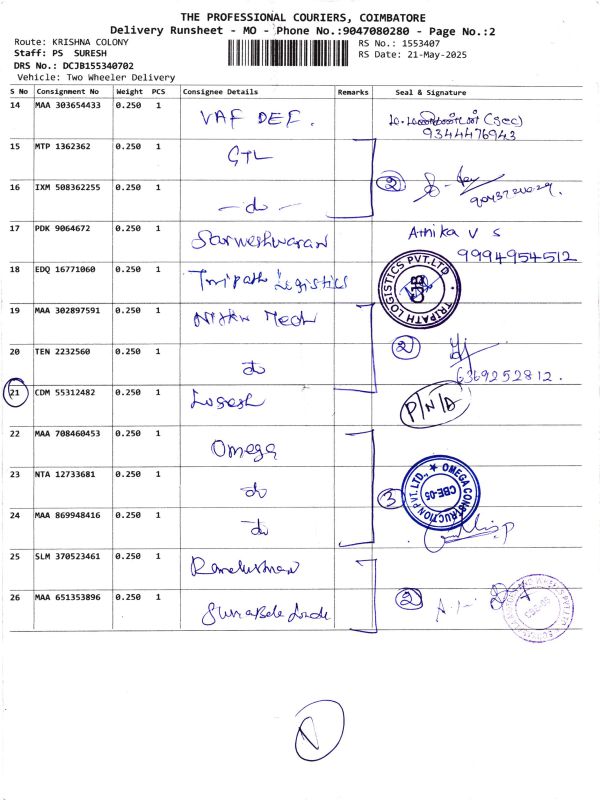 THE PROFESSIONAL COURIERS, COIMBATORE
Delivery Runsheet - MO - Phone No.:9047080280 - Page No.:2
Route: KRISHNA COLONY
Staff: PS SURESH
DRS No.: DCJB155340702
Vehicle: Two Wheeler Delivery
RS No.: 1553407
RS Date: 21-May-2025
S No Consignment No Weight PCS Consignee Details Remarks Seal & Signature
14 MAA 303654433 0.250 1 VAF DEF. (sec)
9344476943
15 MTP 1362362 0.250 1 GTL
16 IXM 508362255 0.250 1 - do - 2
17 PDK 9064672 0.250 1 Sarweshwaran Athika V S
9994954512
18 EDQ 16771060 0.250 1 Tripath Logistics TRIPATH LOGISTICS PVT.LTD
19 MAA 302897591 0.250 1 Tech
20 TEN 2232560 0.250 1 do 2
6369252812.
21 CDM 55312482 0.250 1 P/N/A
22 MAA 708460453 0.250 1 Omega
23 NTA 12733681 0.250 1 do 3 OMEGA CONSTRUCTION PVT. LTD., CBE-05
24 MAA 869948416 0.250 1 do
25 SLM 370523461 0.250 1
26 MAA 651353896 0.250 1 2 CBE-05